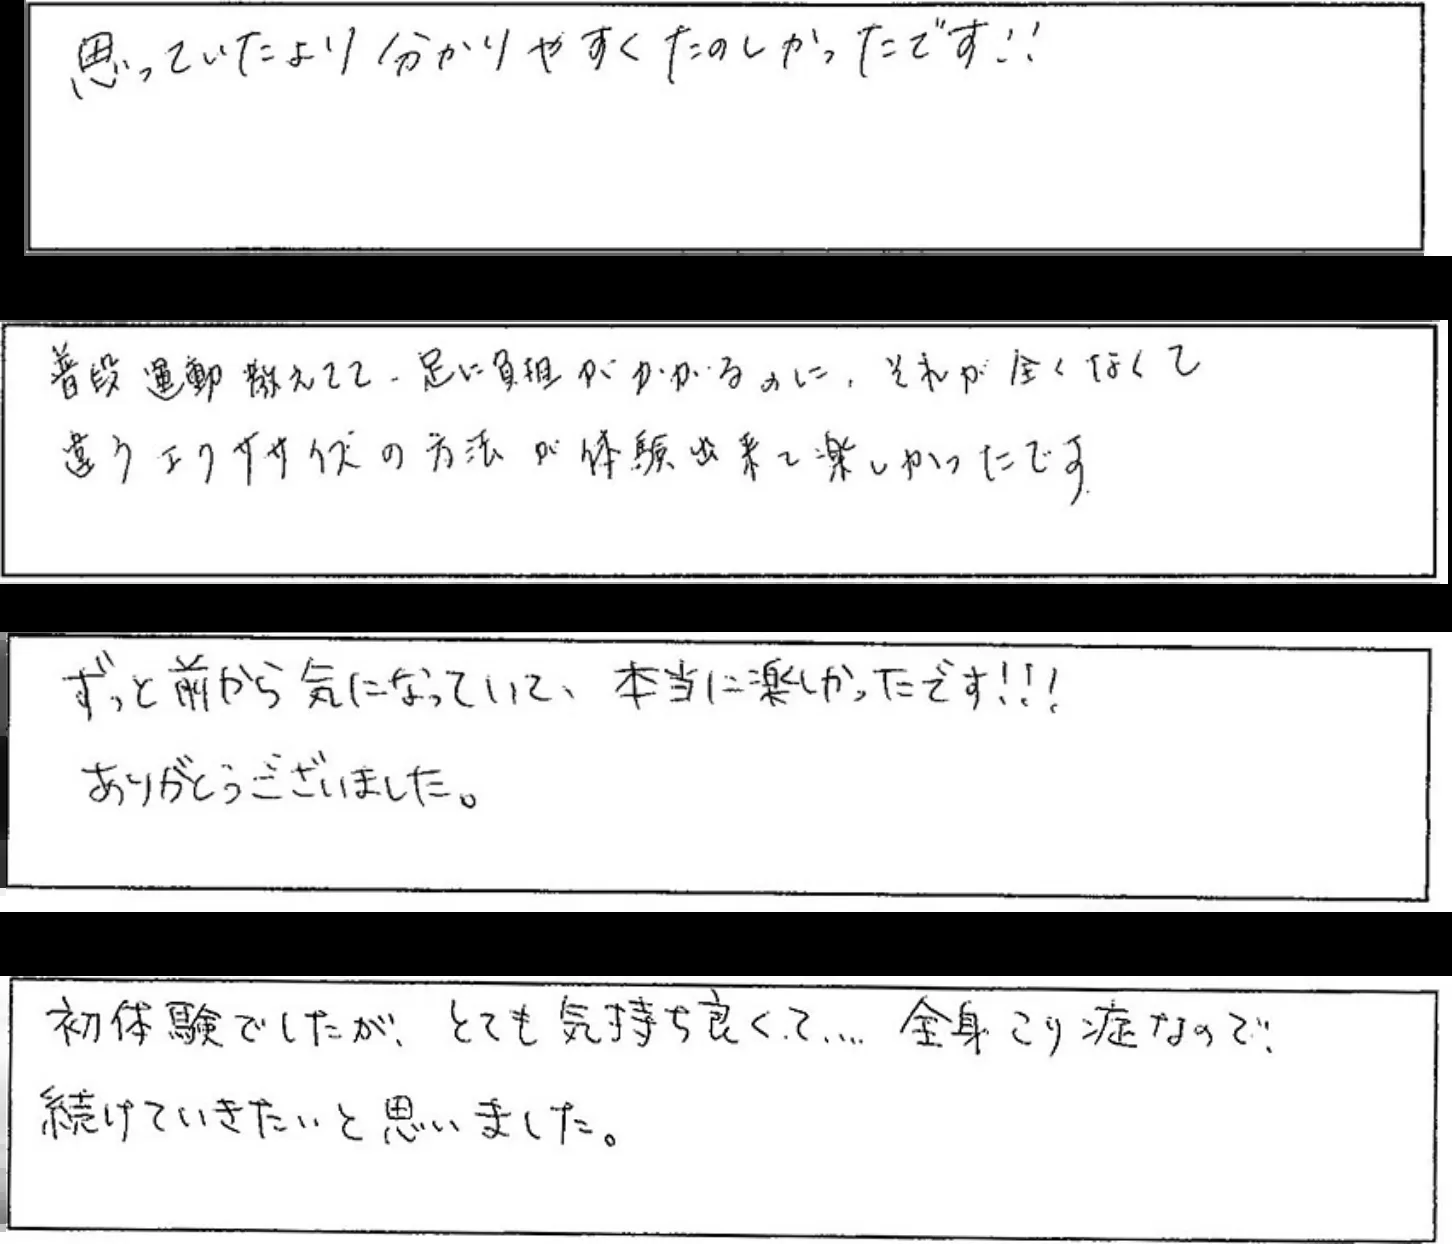 思っていたより分かりやすくたのしかったです!!
普段運動教えてて、足に負担がかかるのに、それが全くなくて
違うエクササイズの方法が体験出来て楽しかったです。
ずっと前から気になっていて、本当に楽しかったです!!!
ありがとうございました。
初体験でしたが、とても気持ち良くて… 全身こり症なので、
続けていきたいと思いました。